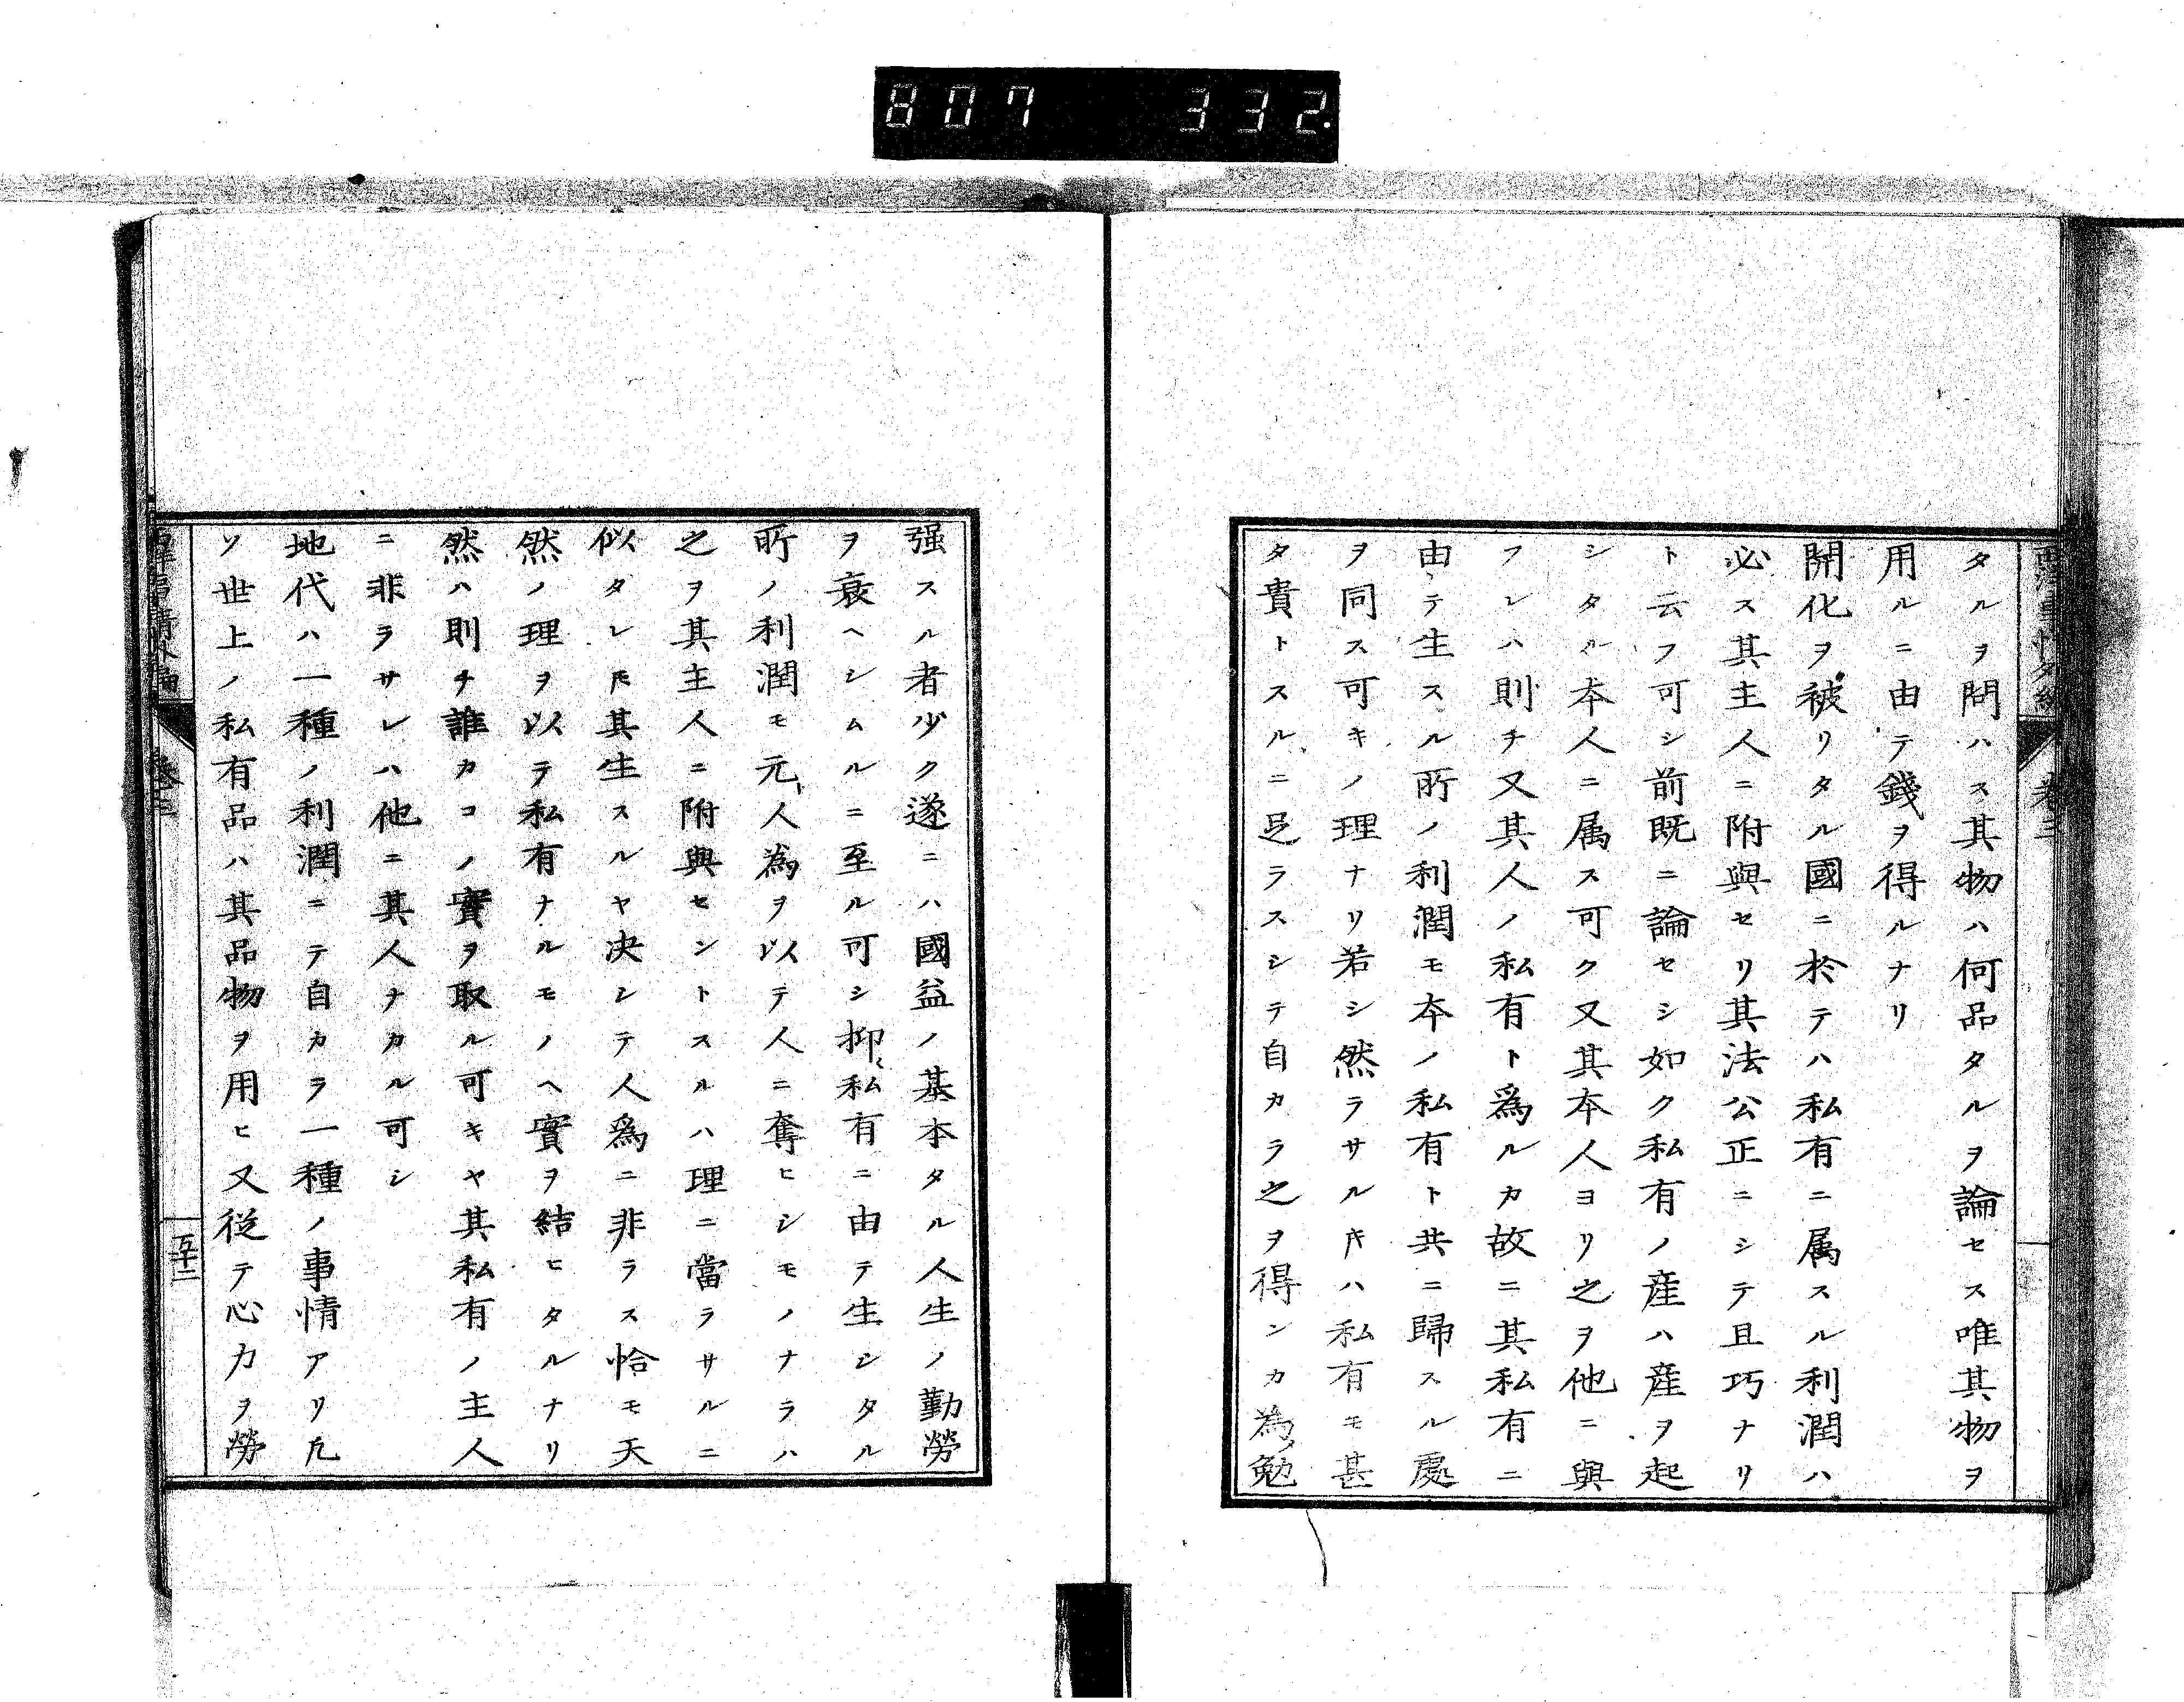 807 332.
タルヲ問ハス其物ハ何品タルヲ論セス唯其物ヲ
用ルニ由テ錢ヲ得ルナリ
開化ヲ被リタル國ニ於テハ私有ニ属スル利潤ハ
必ス其主人ニ附與セリ其法公正ニシテ且巧ナリ
ト云フ可シ前既ニ論セシ如ク私有ノ産ハ産ヲ起
シタル本人ニ属ス可ク又其本人ヨリ之ヲ他ニ與
フレハ則チ又其人ノ私有ト爲ルカ故ニ其私有ニ
由テ生スル所ノ利潤モ本ノ私有ト共ニ歸スル處
ヲ同ス可キノ理ナリ若シ然ラサルキハ私有モ甚
タ貴トスルニ足ラスシテ自カラ之ヲ得ンカ為勉
强スル者少ク遂ニハ國益ノ基本タル人生ノ勤勞
ヲ衰ヘシムルニ至ル可シ抑私有ニ由テ生シタル
所ノ利潤モ元ト人為ヲ以テ人ニ奪ヒシモノナラハ
之ヲ其主人ニ附與セントスルハ理ニ當ラサルニ
似タレ𪜈其生スルヤ决シテ人爲ニ非ラス恰モ天
然ノ理ヲ以テ私有ナルモノヘ實ヲ結ヒタルナリ
然ハ則チ誰カコノ實ヲ取ル可キヤ其私有ノ主人
ニ非ラサレハ他ニ其人ナカル可シ
地代ハ一種ノ利潤ニテ自カラ一種ノ事情アリ凡
ソ世上ノ私有品ハ其品物ヲ用ヒ又従テ心力ヲ勞
西洋事情外編 卷三 五十二